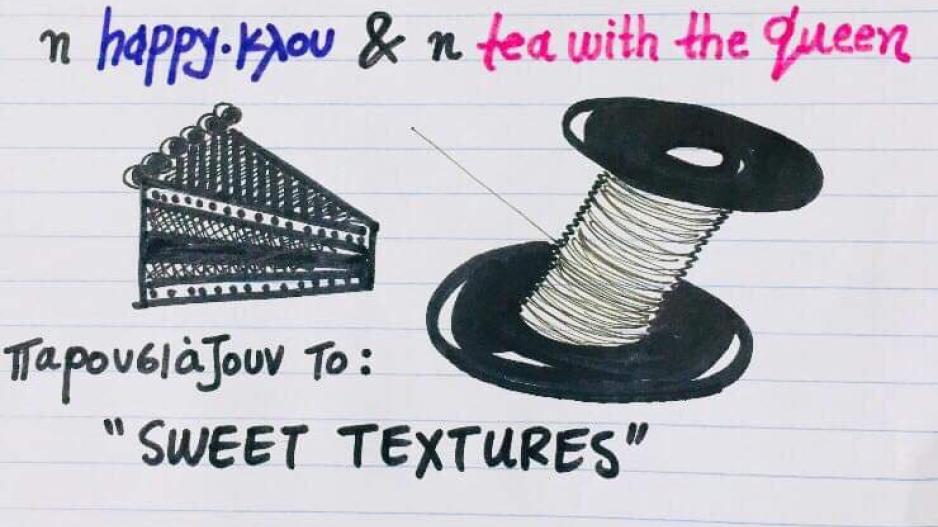 η happy.κλου & η tea with the queen
παρουσιάζουν το:
"SWEET TEXTURES"